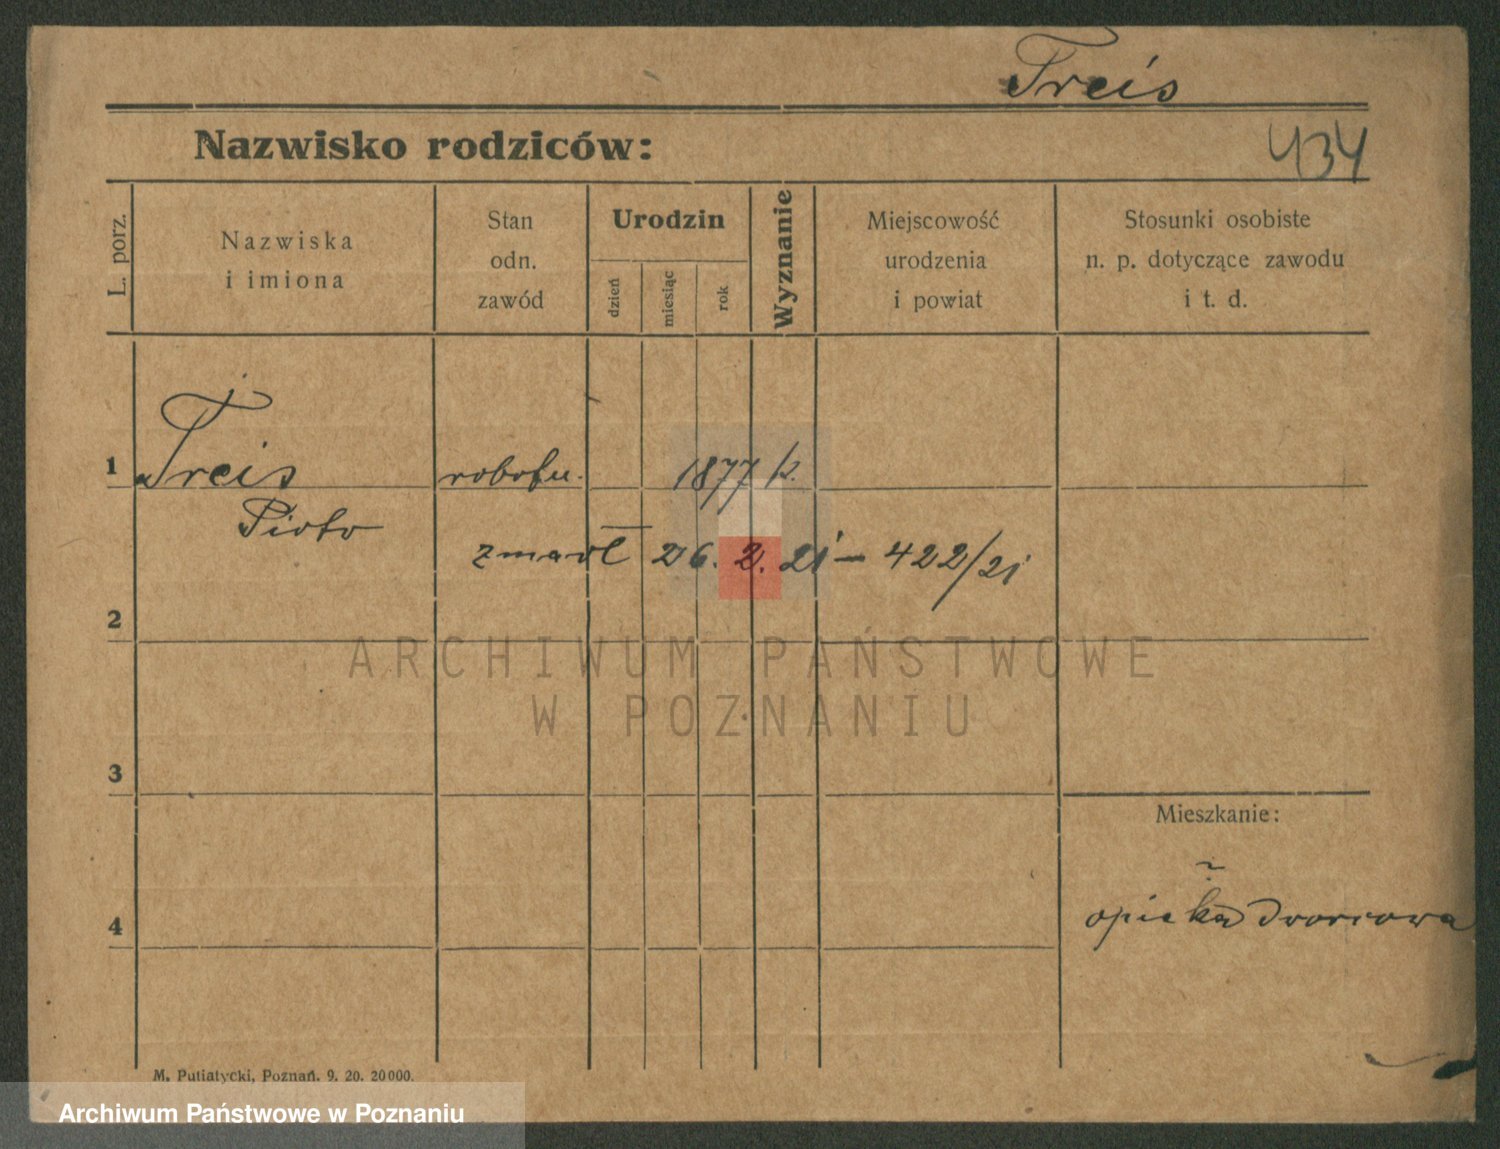 Treis
Nazwisko rodziców:
434
L. porz.
Nazwiska
i imiona
Stan
odn.
zawód
Urodzin
dzień
miesiąc
rok
Wyznanie
Miejscowość
urodzenia
i powiat
Stosunki osobiste
n. p. dotyczące zawodu
i t. d.
1
Treis
robotn.
1877 k.
Piotr
zmarł 26. 2. 21 – 422/21
2
ARCHIWUM PAŃSTWOWE
W POZNANIU
3
Mieszkanie:
4
opieka dworcowa
M. Putiatycki, Poznań. 9. 20. 20000.
Archiwum Państwowe w Poznaniu